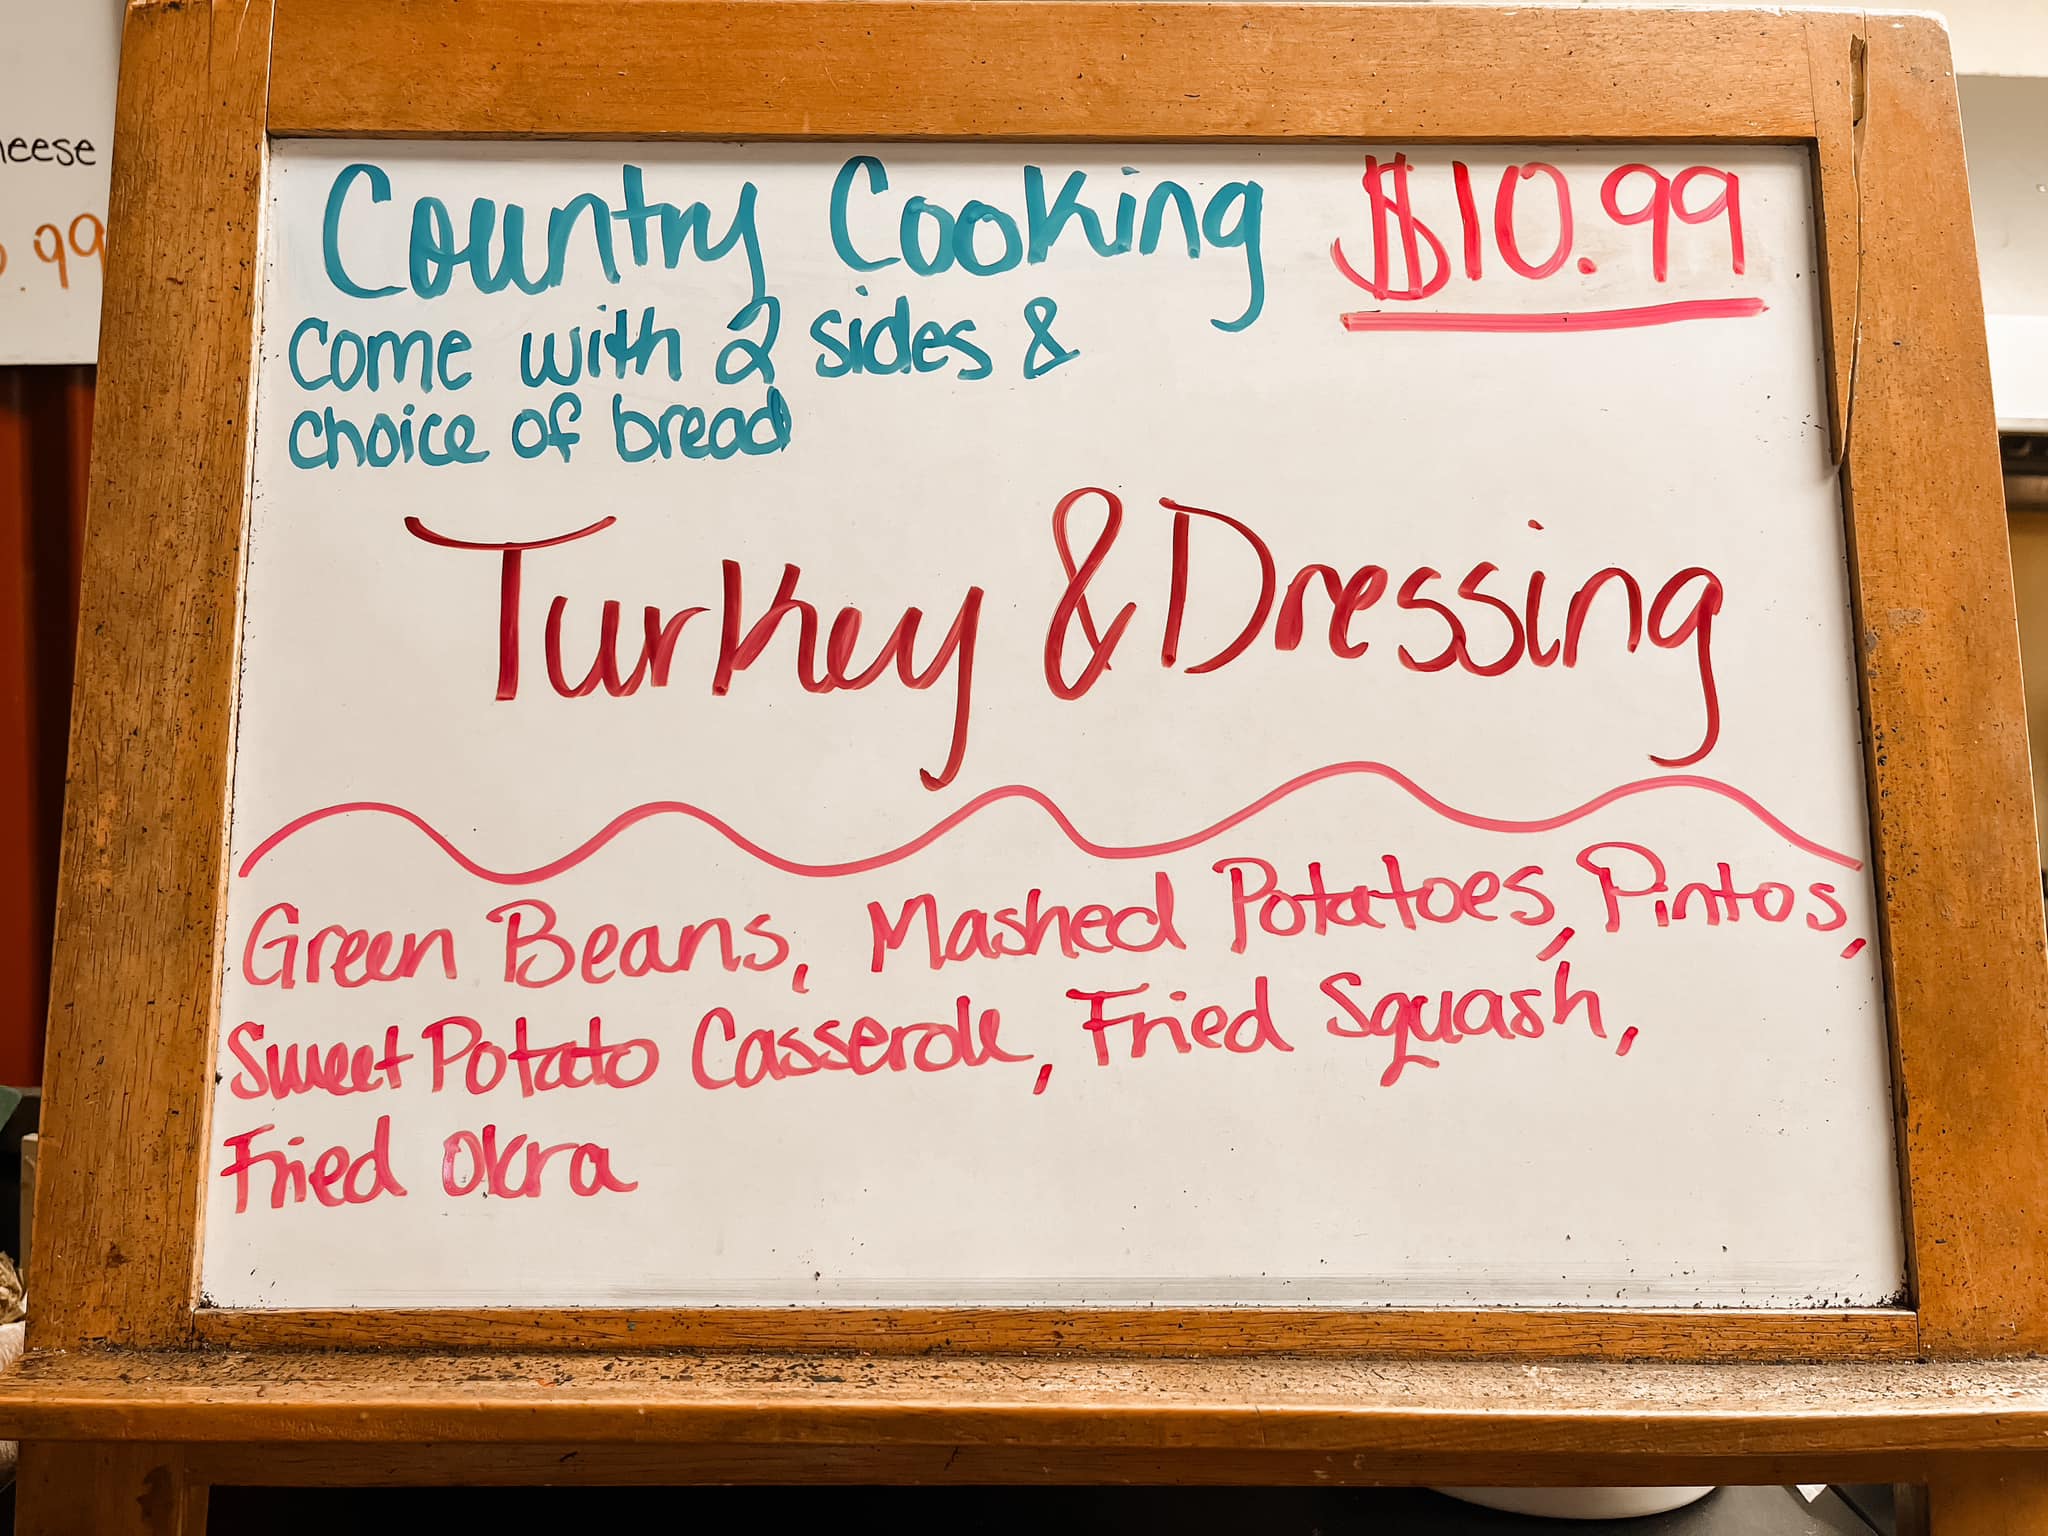 heese
.99
Country Cooking $10.99
Come with 2 sides &
choice of bread
Turkey & Dressing
Green Beans, Mashed Potatoes, Pintos,
Sweet Potato Casserole, Fried Squash,
Fried Okra